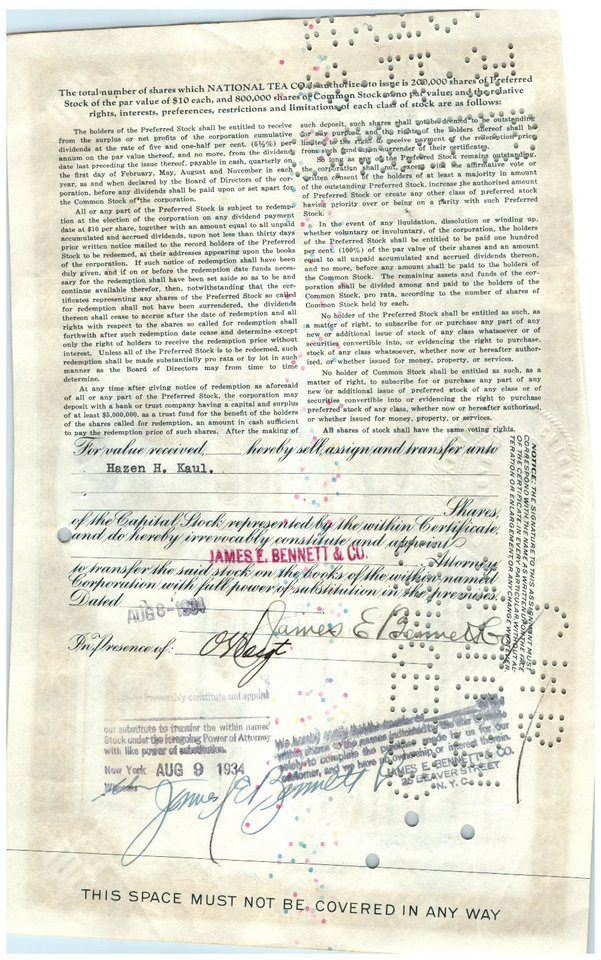 The total number of shares which NATIONAL TEA CO. is authorized to issue is 200,000 shares of Preferred
Stock of the par value of $10 each, and 800,000 shares of Common Stock of no par value; and the relative
rights, interests, preferences, restrictions and limitations of each class of stock are as follows:
The holders of the Preferred Stock shall be entitled to receive
from the surplus or net profits of the corporation cumulative
dividends at the rate of five and one-half per cent. (5½%) per
annum on the par value thereof, and no more, from the dividend
date last preceding the issue thereof, payable in cash, quarterly on
the first day of February, May, August and November in each
year, as and when declared by the Board of Directors of the cor-
poration, before any dividends shall be paid upon or set apart for
the Common Stock of the corporation.
All or any part of the Preferred Stock is subject to redemp-
tion at the election of the corporation on any dividend payment
date at $10 per share, together with an amount equal to all unpaid
accumulated and accrued dividends, upon not less than thirty days
prior written notice mailed to the record holders of the Preferred
Stock to be redeemed, at their addresses appearing upon the books
of the corporation. If such notice of redemption shall have been
duly given, and if on or before the redemption date funds neces-
sary for the redemption shall have been set aside so as to be and
continue available therefor, then, notwithstanding that the cer-
tificates representing any shares of the Preferred Stock so called
for redemption shall not have been surrendered, the dividends
thereon shall cease to accrue after the date of redemption and all
rights with respect to the shares so called for redemption shall
forthwith after such redemption date cease and determine except
only the right of holders to receive the redemption price without
interest. Unless all of the Preferred Stock is to be redeemed, such
redemption shall be made substantially pro rata or by lot in such
manner as the Board of Directors may from time to time
determine.
At any time after giving notice of redemption as aforesaid
of all or any part of the Preferred Stock, the corporation may
deposit with a bank or trust company having a capital and surplus
of at least $5,000,000, as a trust fund for the benefit of the holders
of the shares called for redemption, an amount in cash sufficient
to pay the redemption price of such shares. After the making of
such deposit, such shares shall not be deemed to be outstanding
for any purpose, and the rights of the holders thereof shall be
limited to the right to receive payment of the redemption price
from such fund upon surrender of their certificates.
So long as any of the Preferred Stock remains outstanding,
the corporation shall not, except with the affirmative vote or
written consent of the holders of at least a majority in amount
of the outstanding Preferred Stock, increase the authorized amount
of Preferred Stock or create any other class of preferred stock
having priority over or being on a parity with such Preferred
Stock.
In the event of any liquidation, dissolution or winding up,
whether voluntary or involuntary, of the corporation, the holders
of the Preferred Stock shall be entitled to be paid one hundred
per cent. (100%) of the par value of their shares and an amount
equal to all unpaid accumulated and accrued dividends thereon,
and no more, before any amount shall be paid to the holders of
the Common Stock. The remaining assets and funds of the cor-
poration shall be divided among and paid to the holders of the
Common Stock, pro rata, according to the number of shares of
Common Stock held by each.
No holder of the Preferred Stock shall be entitled as such, as
a matter of right, to subscribe for or purchase any part of any
new or additional issue of stock of any class whatsoever or of
securities convertible into, or evidencing the right to purchase,
stock of any class whatever, whether now or hereafter author-
ized, or whether issued for money, property, or services.
No holder of Common Stock shall be entitled as such, as a
matter of right, to subscribe for or purchase any part of any
new or additional issue of preferred stock of any class or of
securities convertible into or evidencing the right to purchase
preferred stock of any class, whether now or hereafter authorized,
or whether issued for money, property, or services.
All shares of stock shall have the same voting rights.
For value received, hereby sell, assign and transfer unto
Hazen H. Kaul.
Shares
of the Capital Stock represented by the within Certificate,
and do hereby irrevocably constitute and appoint
JAMES E. BENNETT & CO.
Attorney
to transfer the said stock on the books of the within named
Corporation with full power of substitution in the premises.
Dated AUG 8 - 1934
James E Bennett & Co
In Presence of:
NOTICE: THE SIGNATURE TO THIS ASSIGNMENT MUST
CORRESPOND WITH THE NAME AS WRITTEN UPON THE FACE
OF THE CERTIFICATE IN EVERY PARTICULAR, WITHOUT AL-
TERATION OR ENLARGEMENT OR ANY CHANGE WHATEVER.
by irrevocably constitute and appoint
our substitute to transfer the within named
Stock under the foregoing Power of Attorney
with like power of substitution.
New York AUG 9 1934
Witness
James E Bennett
We hereby certify that the transfer of
within shares to the names indicated by
solely to complete the purchase made by us for our
customer, and we have no ownership or interest therein.
JAMES E. BENNETT & CO.
25 BEAVER STREET
N. Y. C.
THIS SPACE MUST NOT BE COVERED IN ANY WAY